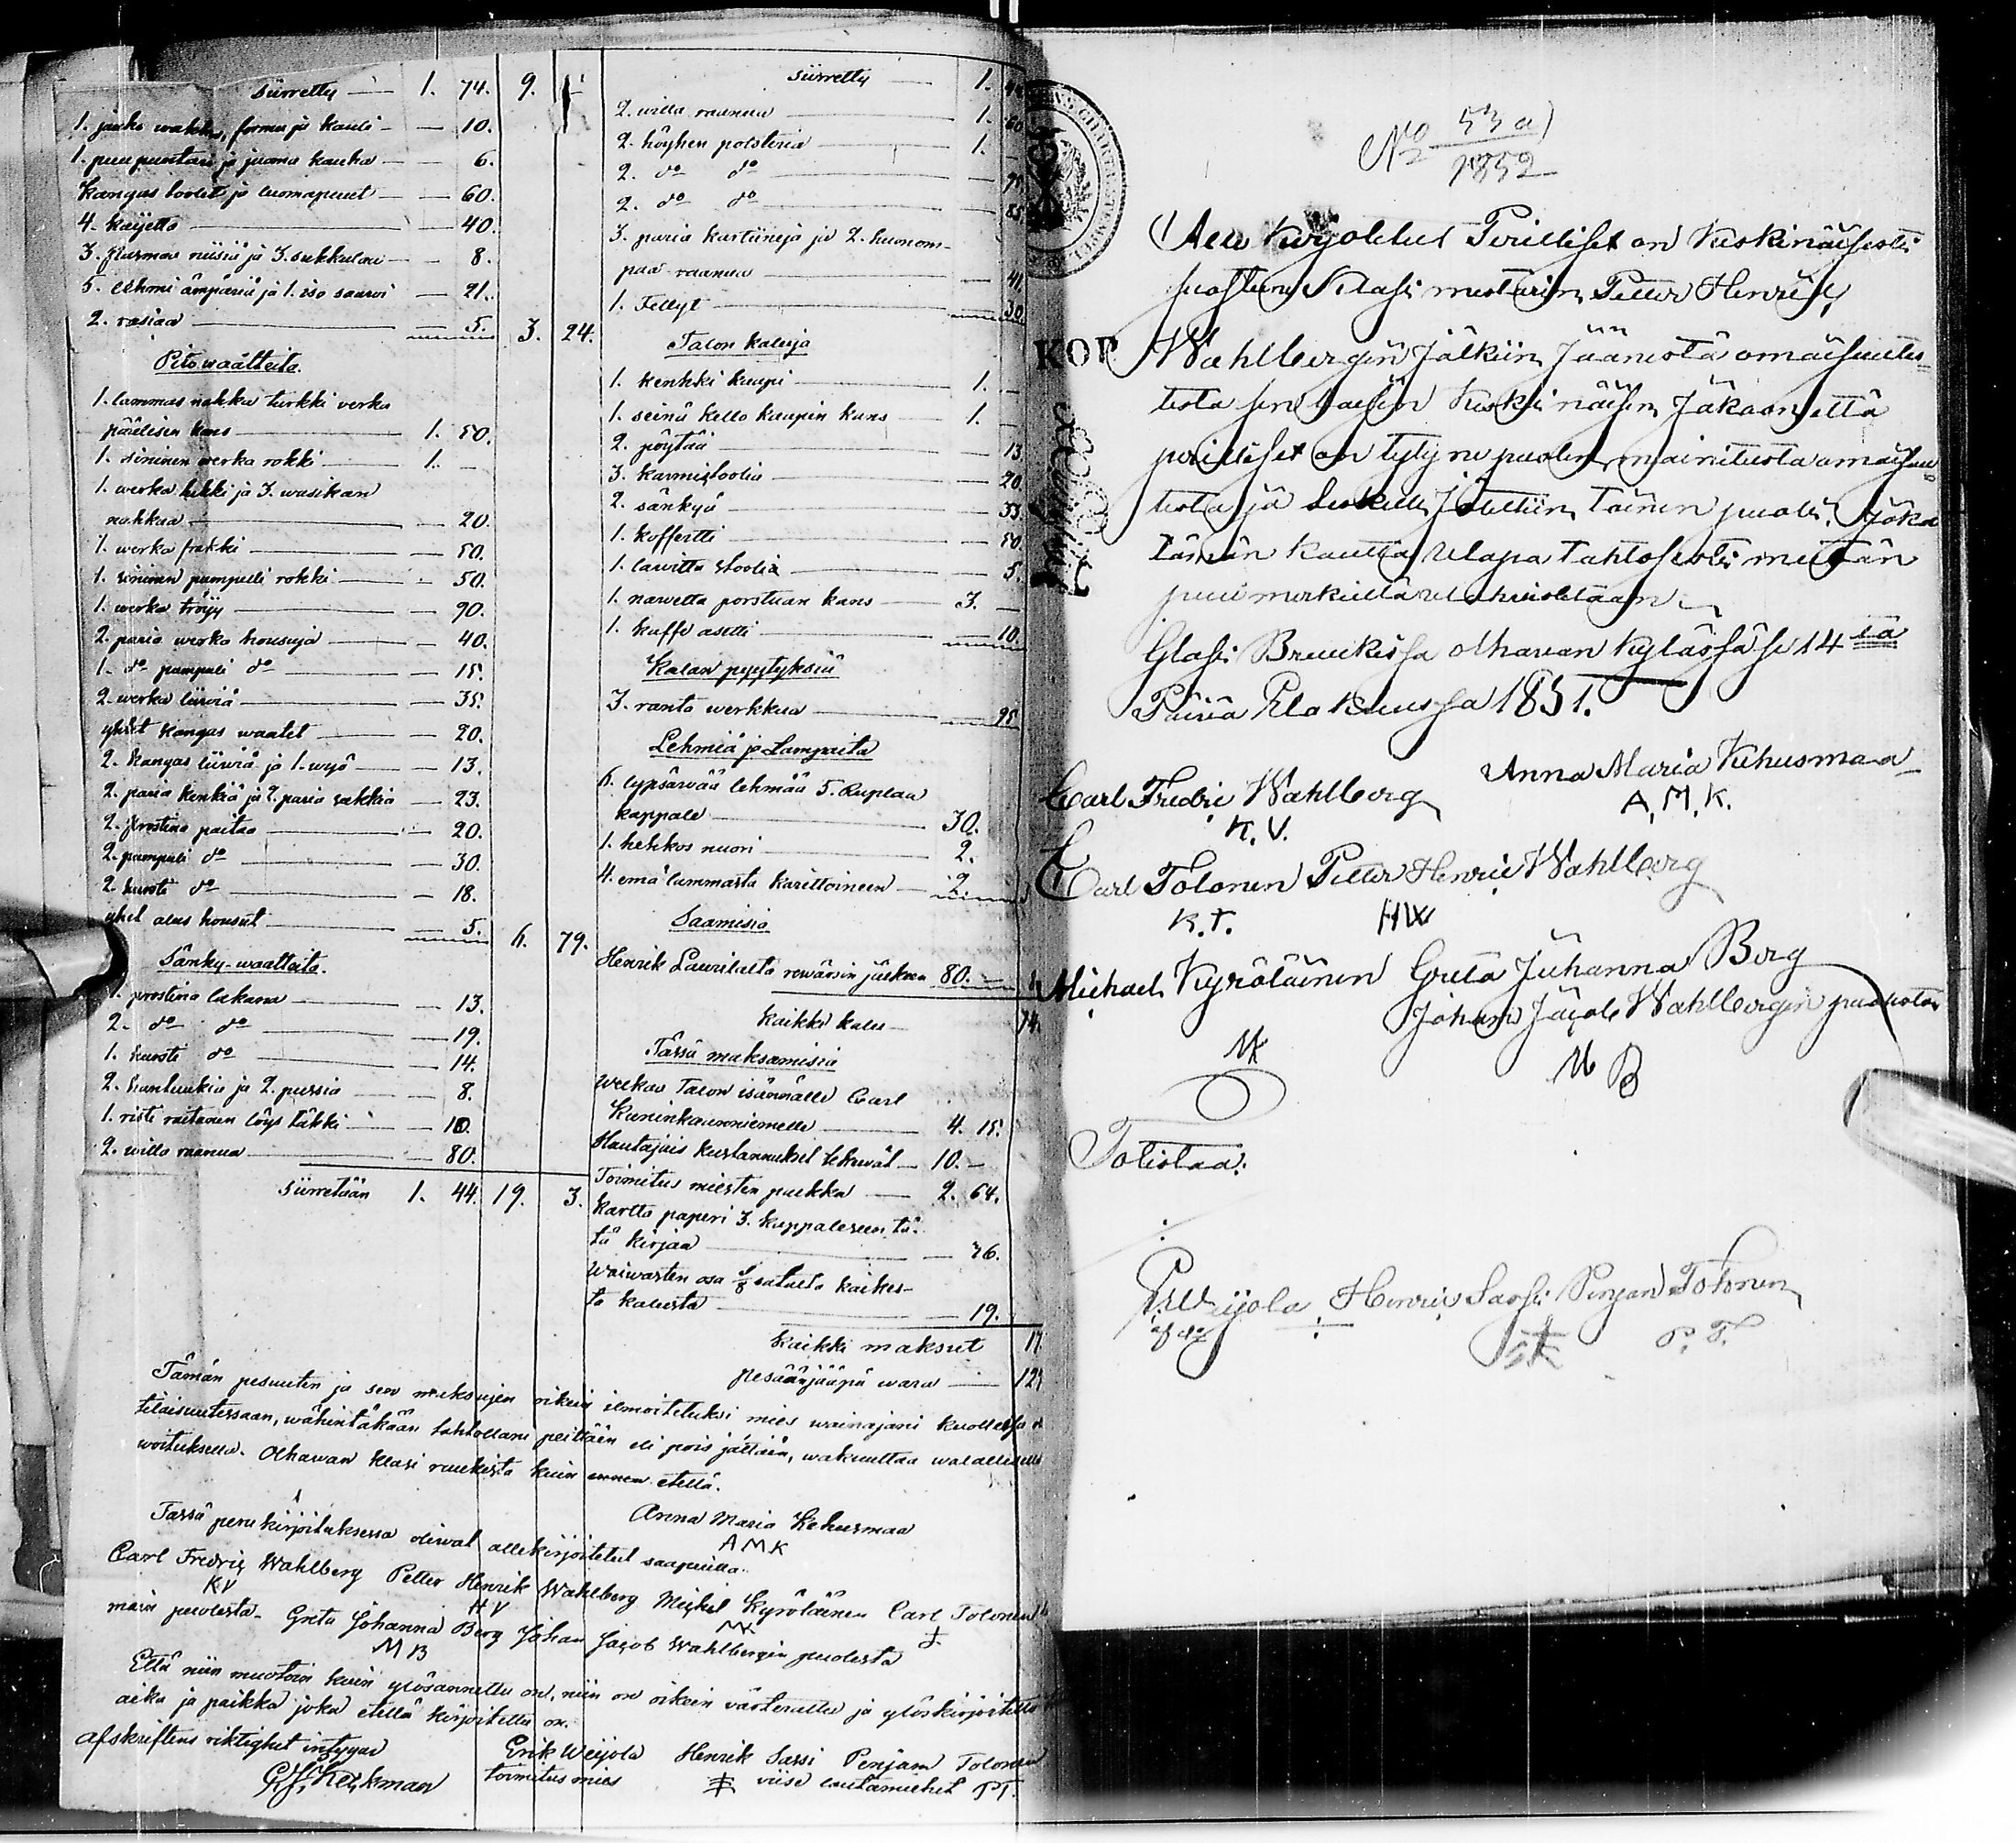 Siirretty — 1. 74. 9.
1. jauho wakka, formu ja kauli — 10.
1. puupuntari ja juoma kauha — 6.
Kangas loolit ja luomapuut — 60.
4. käyettä — 40.
3. niisiä ja 3. sukkulaa — 8.
5. lehmi ämpäriä ja 1. iso saawi — 21.
2. rasiaa — 5. 3. 24.
Pito waatteita.
1. lammas nahka turkki verka
päälisen kans — 1. 50.
1. sininen werka rokki — 1. —
1. werka lakki ja 3. wasikan
nahkaa — 20.
1. werka frakki — 50.
1. sininen pumpuli rokki — 50.
1. werka tröyy — 90.
2. paria werka housuja — 40.
1. do pumpuli do — 15.
2. werka liiwiä — 35.
yhdet kangas waatet — 20.
2. kangas liiwiä ja 1. wyö — 13.
2. paria kenkiä ja 2. paria sukkia — 23.
2. prostina paitaa — 20.
2. pumpuli do — 30.
2. hursti do — 18.
yhet alus housut — 5. 6. 79.
Sänky-waatteita.
1. prostina lakana — 13.
2. do do — 19.
1. hursti do — 14.
2. ja 2. pussia — 8.
1. risti raitanen löys täkki — 10.
2. willa raanua — 80.
Siirretään 1. 44. 19. 3.
Siirretty — 1. 44
2. willa raanua — 1. 60
2. höyhen polsteria — 1. —
2. do do — 75
2. do do — 85
3. paria kartiineja ja 2. huonom-
paa raanua — 41
1. Fellyt — 30
Talon kaluja
1. kenkki kaapi — 1. —
1. seinä kello kaapin kans — 1. —
2. pöytää — 13
3. karmistoolia — 20
2. sänkyä — 33
1. koffertti — 50
1. lawitta stoolia — 5.
1. nawetta porstuan kans — 3. —
1. kaffe asetti — 10.
Kalan pyytyksiä
3. ranta werkkua — 95
Lehmiä ja Lampaita
6. lypsäwää lehmää 5. Ruplaa
kappale — 30.
1. hehkos nuori — 2.
4. emä lammasta karittoineen — 2.
Saamisia
Henrik Laurilalta rewärsin jälkeen 80. —
Kaikki kalu — 74.
Tässä maksamisia
Weekas Talon isännälle Carl
Kuninkaanniemelle — 4. 15.
Hautajais kustannukset tekewät — 10. —
Toimitus miesten palkka — 2. 64.
Kartta paperi 3. kappaleseen tä-
tä kirjaa — 76.
Waiwasten osa 1/8 sataelta kaikes-
ta kalusta — 19.
Kaikki maksut 17
pesäänjääpä wara — 12
Tämän pesuuten ja sen maksujen oikein ilmoitetuksi mies wainajani kuollessa
tilaisuutessaan, wähintäkään tahtollani peittäin eli pois jättäin, wakuuttaa walallisella
woituksella. Olhawan klasi ruukista kuin ennen etellä.
Anna Maria Kehusmaa
AMK
Tässä peru kirjoituksessa oliwat allekirjoitetut saapuilla.
Carl Fredrig Wahlberg Petter Henrik Wahlberg Mickel Kyröläinen Carl Tolonen
KV HV MK T.
main puolesta. Greta Johanna Berg Johan Jacob Wahlbergin puolesta
MB
Että niin muotoin kuin ylösannettu on, niin on oikein värteerattu ja ylöskirjoitettu
aika ja paikka joka etellä kirjoitettu on.
Afskriftens riktighet intygar
Erik Weijola Henrik Sassi Penjam Tolonen
toimitus mies viise lautamiehet PT.
No 53 a)
1852
KOP
Alla kirjoitetut Perilliset on Keskinäisesti
suostuny Klasi mestarin Petter Henrich
Wahlbergin Jälkiin Jäänestä omaisuutes-
testa sen Keskinäisen Jakoon että
perilliset on tytyny puolen mainitusta omaisuu-
testa ja Leskelle Jätettiin toinen puoli. Joka
tämän kautta Wapa Tahtosesti meitän
puu merkeillä wahwistetaan.
Glasi Bruukissa Olhavan Kylässä se 14 tä
Päivä Elokuussa 1851.
Carl Fredric Wahlberg Anna Maria Kehusmaa
K.V. A.M.K.
Carl Tolonen Petter Henric Wahlberg
K.T. HW
Michael Kyröläinen Greta Juhanna Berg
Johan Jacob Wahlbergin puolesta
MK M B
Totistaa:
E. Weijola Henric Sassi Penjam Tolonen
P.T.